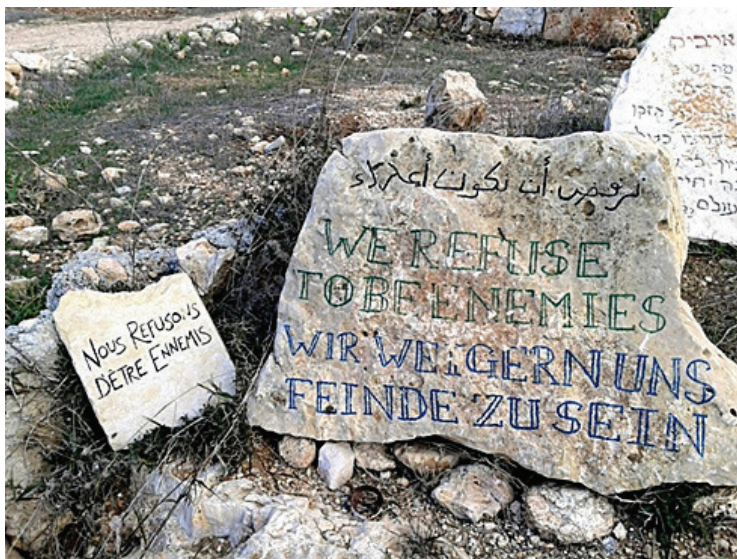 نرفض أن نكون أعداء
WE REFUSE
TO BE ENEMIES
WIR WEIGERN UNS
FEINDE ZU SEIN
NOUS REFUSONS
D'ÊTRE ENNEMIS